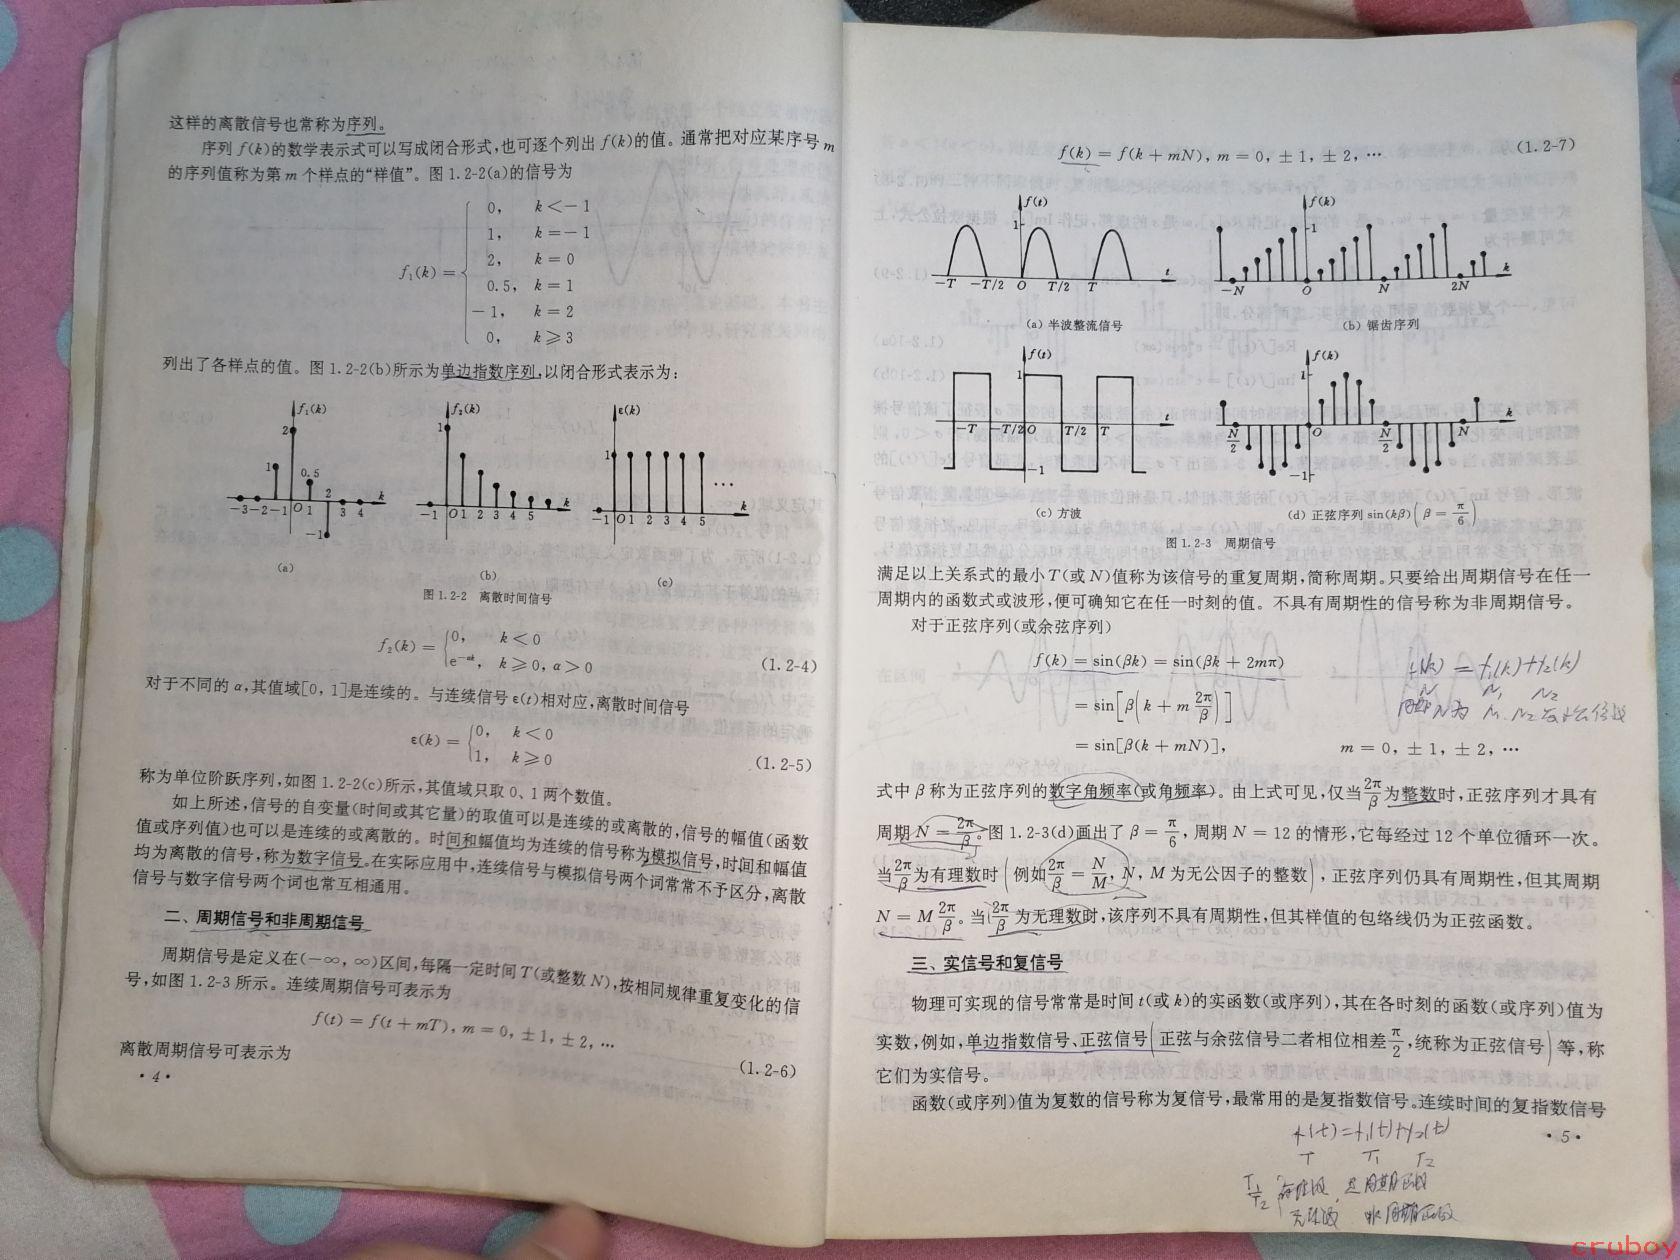 这样的离散信号也常称为序列。
序列 f(k)的数学表示式可以写成闭合形式,也可逐个列出 f(k)的值。通常把对应某序号 m
的序列值称为第 m 个样点的“样值”。图 1.2-2(a)的信号为
f₁(k) = { 0, k<-1
1, k=-1
2, k=0
0.5, k=1
-1, k=2
0, k⩾3
列出了各样点的值。图 1.2-2(b)所示为单边指数序列,以闭合形式表示为:
f₁(k) 2 1 0.5 2 -3 -2 -1 O 1 3 4 k -1
f₂(k) 1 -1 O 1 2 3 4 5 k
ε(k) 1 -1 O 1 2 3 4 5 k …
(a) (b) (c)
图 1.2-2 离散时间信号
f₂(k) = { 0, k<0
e^{-αk}, k⩾0, α>0 (1.2-4)
对于不同的 α,其值域[0, 1]是连续的。与连续信号 ε(t)相对应,离散时间信号
ε(k) = { 0, k<0
1, k⩾0 (1.2-5)
称为单位阶跃序列,如图 1.2-2(c)所示,其值域只取 0、1 两个数值。
如上所述,信号的自变量(时间或其它量)的取值可以是连续的或离散的,信号的幅值(函数
值或序列值)也可以是连续的或离散的。时间和幅值均为连续的信号称为模拟信号,时间和幅值
均为离散的信号,称为数字信号。在实际应用中,连续信号与模拟信号两个词常常不予区分,离散
信号与数字信号两个词也常互相通用。
二、周期信号和非周期信号
周期信号是定义在(-∞, ∞)区间,每隔一定时间 T(或整数 N),按相同规律重复变化的信
号,如图 1.2-3 所示。连续周期信号可表示为
f(t) = f(t + mT), m = 0, ± 1, ± 2, …
(1.2-6)
离散周期信号可表示为
· 4 ·
f(k) = f(k + mN), m = 0, ± 1, ± 2, … (1.2-7)
f(t) 1 -T -T/2 O T/2 T t
f(k) 1 -N O N 2N k
(a) 半波整流信号 (b) 锯齿序列
f(t) 1 -T -T/2 O T/2 T t -1
f(k) 1 N/2 O N/2 N k -1
(c) 方波 (d) 正弦序列 sin(kβ)(β = π/6)
图 1.2-3 周期信号
满足以上关系式的最小 T(或 N)值称为该信号的重复周期,简称周期。只要给出周期信号在任一
周期内的函数式或波形,便可确知它在任一时刻的值。不具有周期性的信号称为非周期信号。
对于正弦序列(或余弦序列)
f(k) = sin(βk) = sin(βk + 2mπ)
= sin[β(k + m 2π/β)]
= sin[β(k + mN)], m = 0, ± 1, ± 2, …
f(k) = f₁(k)+f₂(k)
N N₁ N₂
式中 β 称为正弦序列的数字角频率(或角频率)。由上式可见,仅当 2π/β 为整数时,正弦序列才具有
周期 N = 2π/β。图 1.2-3(d)画出了 β = π/6, 周期 N = 12 的情形,它每经过 12 个单位循环一次。
当 2π/β 为有理数时(例如 2π/β = N/M, N, M 为无公因子的整数),正弦序列仍具有周期性,但其周期
N = M 2π/β。当 2π/β 为无理数时,该序列不具有周期性,但其样值的包络线仍为正弦函数。
三、实信号和复信号
物理可实现的信号常常是时间 t(或 k)的实函数(或序列),其在各时刻的函数(或序列)值为
实数,例如,单边指数信号、正弦信号(正弦与余弦信号二者相位相差 π/2,统称为正弦信号)等,称
它们为实信号。
函数(或序列)值为复数的信号称为复信号,最常用的是复指数信号。连续时间的复指数信号
· 5 ·
f(t)=f₁(t)+f₂(t)
T T₁ T₂
T₁/T₂ 有理数, 是周期函数
无理数, 非周期函数
cruboy